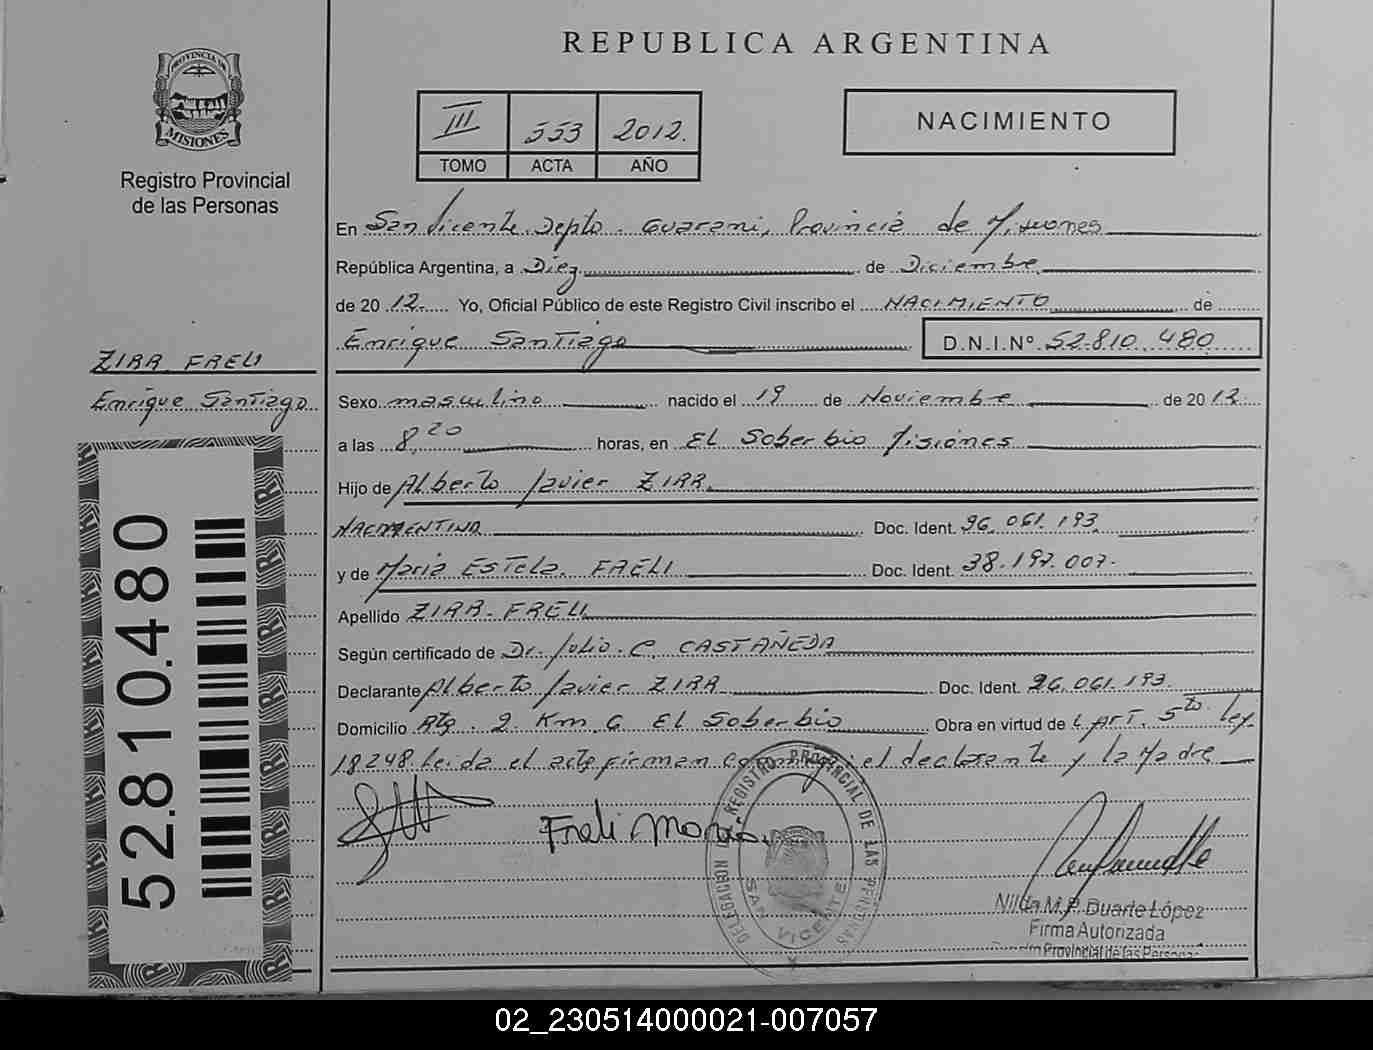 REPUBLICA ARGENTINA
PROVINCIA DE
MISIONES
Registro Provincial
de las Personas
III 553 2012.
TOMO ACTA AÑO
NACIMIENTO
En San Vicente Depto. Guarani, Provincia de Misiones
República Argentina, a Diez de Diciembre
de 2012 Yo, Oficial Público de este Registro Civil inscribo el NACIMIENTO de
Enrique Santiago D.N.I.Nº 52.810.480
ZIRR FRELI
Enrique Santiago
Sexo masculino nacido el 19 de Noviembre de 2012
a las 8,20 horas, en EL Soberbio Misiones
Hijo de Alberto Javier ZIRR
Doc. Ident. 26.061.193
y de Maria Estela FRELI Doc. Ident. 38.197.007.
Apellido ZIRR-FRELI
Según certificado de Dr. Julio C. CASTAÑEDA
Declarante Alberto Javier ZIRR Doc. Ident. 26.061.193
Domicilio Rta. 2 Km 6 EL Soberbio Obra en virtud de L ART. 5to Ley
18248 Leida el acta firman conmigo el declarante y la Madre
Freli Maria
DELEGACION REGISTRO PROVINCIAL DE LAS PERSONAS
SAN VICENTE
Nilda M.P. Duarte López
Firma Autorizada
Provincial de las Personas
52.810.480
02_230514000021-007057